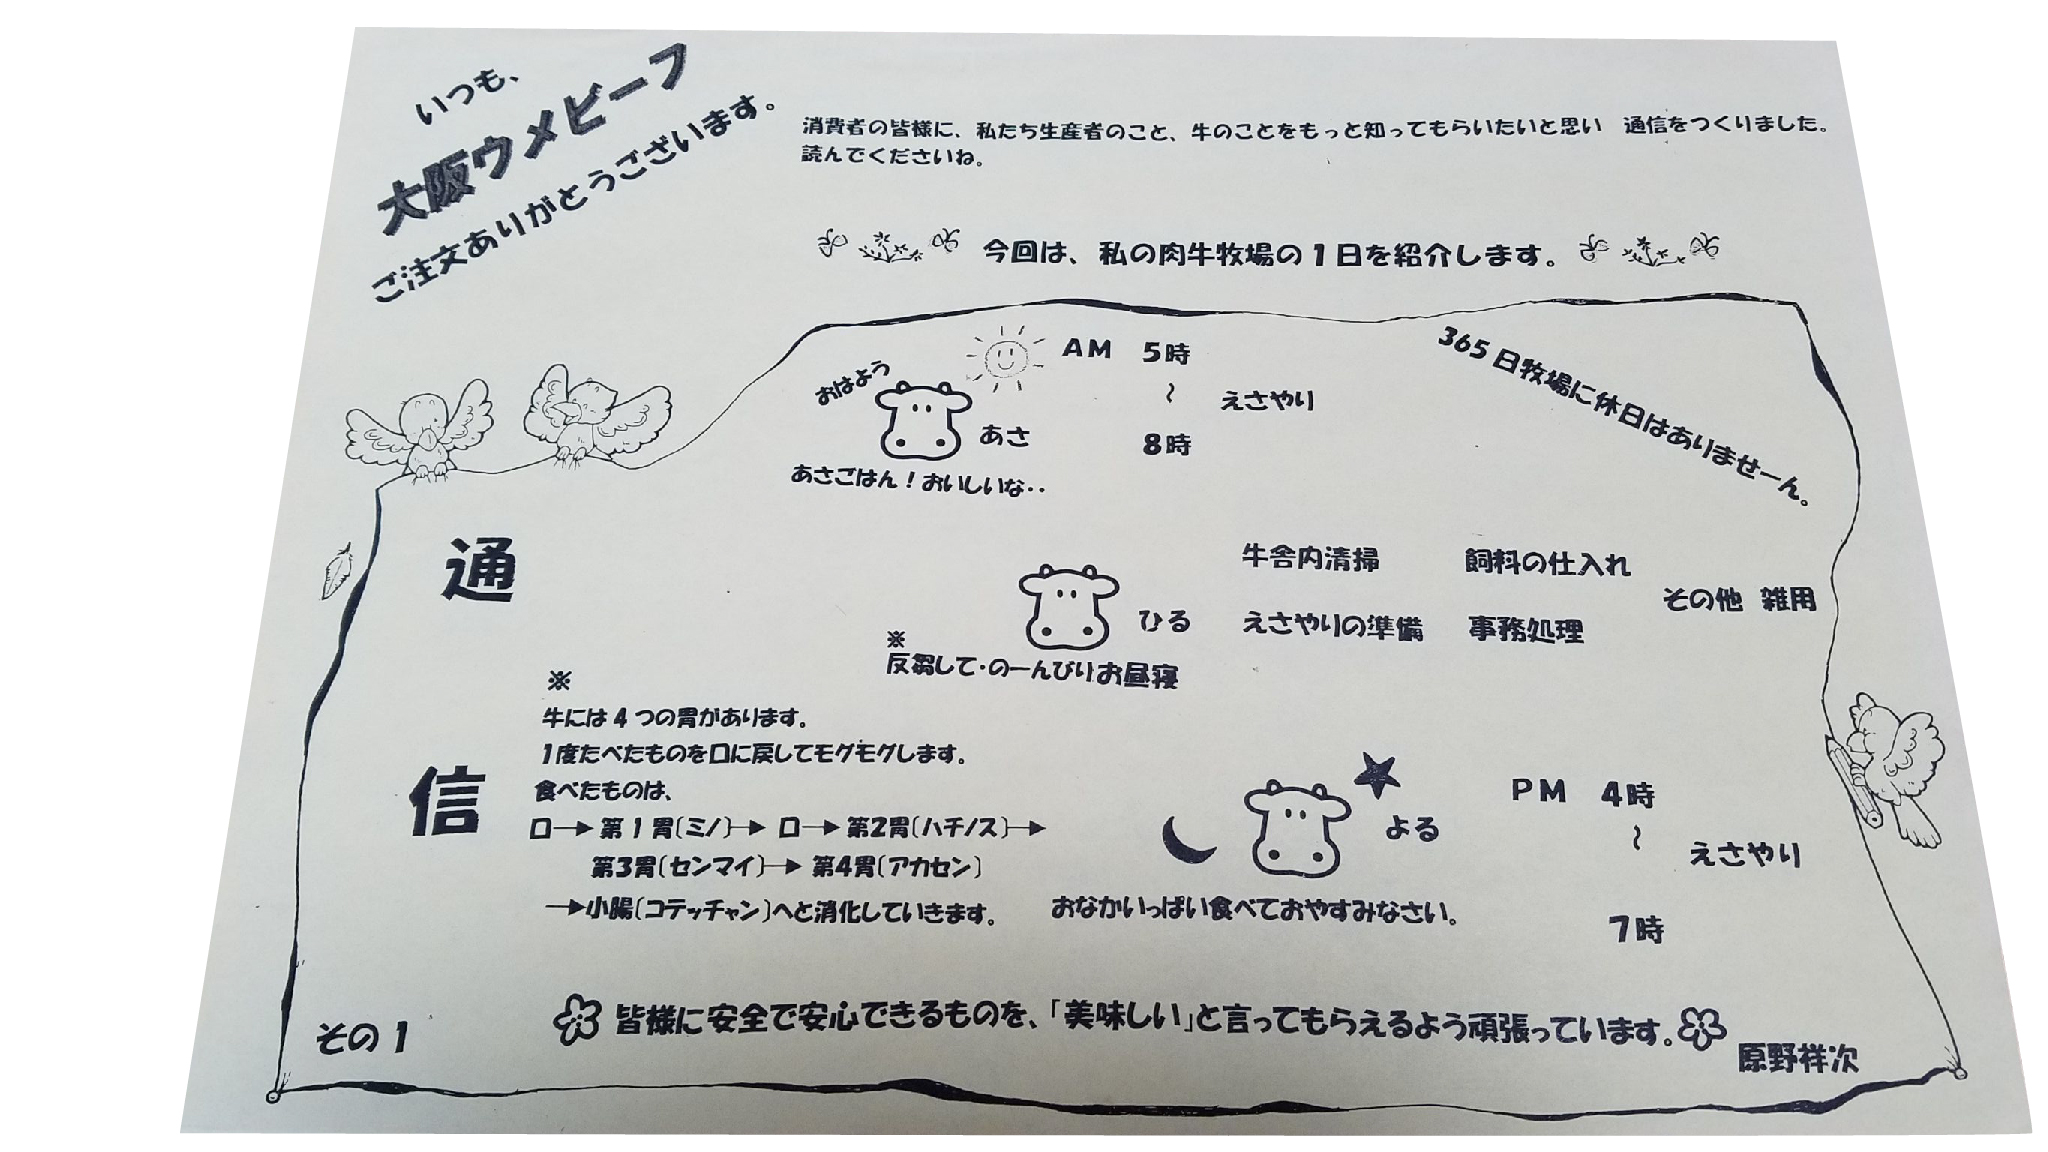 いつも、
大阪ウメビーフ
ご注文ありがとうございます。
消費者の皆様に、私たち生産者のこと、牛のことをもっと知ってもらいたいと思い　通信をつくりました。
読んでくださいね。
今回は、私の肉牛牧場の1日を紹介します。
365日牧場に休日はありませーん。
おはよう
あさ
あさごはん！おいしいな・・
AM 5時
～
8時
えさやり
通信
ひる
※
反芻して・のーんびりお昼寝
牛舎内清掃　飼料の仕入れ
えさやりの準備　事務処理
その他 雑用
※
牛には4つの胃があります。
1度たべたものを口に戻してモグモグします。
食べたものは、
口→第1胃(ミノ)→口→第2胃(ハチノス)→
第3胃(センマイ)→第4胃(アカセン)
→小腸(コテッチャン)へと消化していきます。
よる
おなかいっぱい食べておやすみなさい。
PM 4時
～
7時
えさやり
その1
皆様に安全で安心できるものを、「美味しい」と言ってもらえるよう頑張っています。
原野祥次